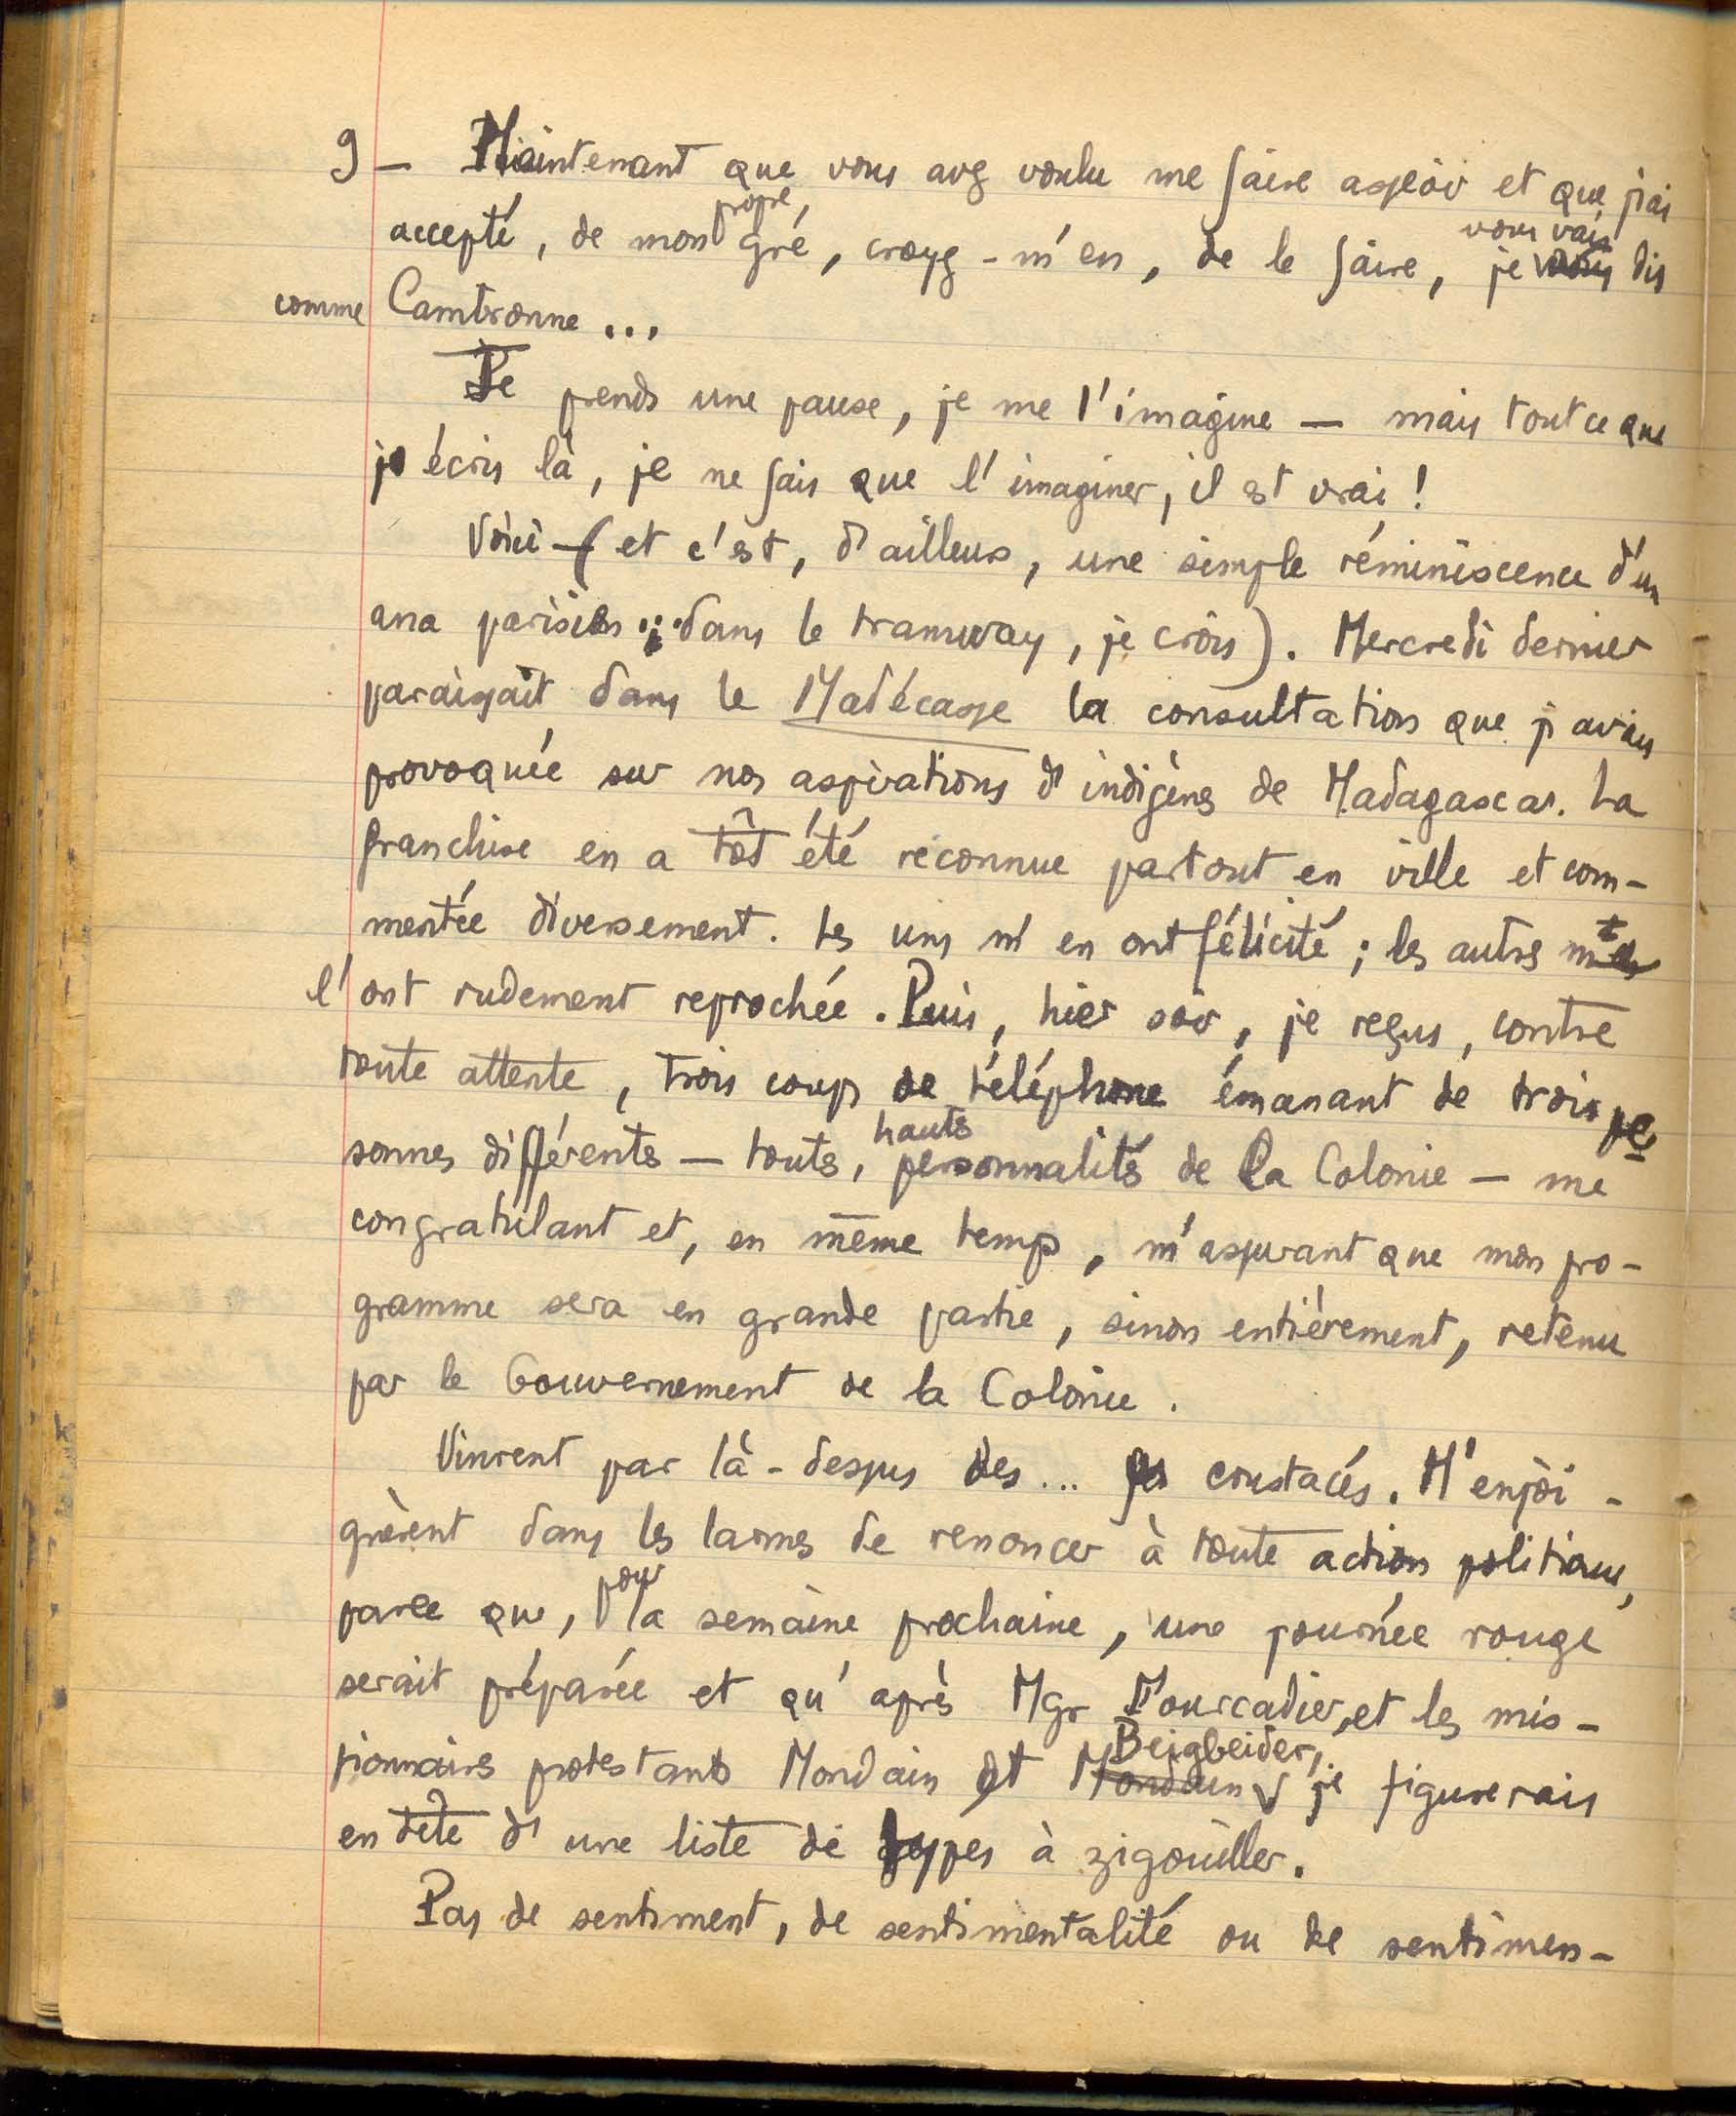 9 — Maintenant que vous avez voulu me faire asseoir et que j'ai
accepté, de mon propre gré, croyez-m'en, de le faire, je vous vais dis
comme Cambronne...
Je prends une pause, je me l'imagine — mais tout ce que
j'écris là, je ne fais que l'imaginer, il est vrai !
Voici — (et c'est, d'ailleurs, une simple réminiscence d'un
ana parisien... dans le tramway, je crois). Mercredi dernier
paraissait dans le Madécasse la consultation que j'avais
provoquée sur nos aspirations d'indigènes de Madagascar. La
franchise en a tôt été reconnue partout en ville et com-
mentée diversement. Les uns m'en ont félicité ; les autres me
l'ont rudement reprochée. Puis, hier soir, je reçus, contre
toute attente, trois coups de téléphone émanant de trois per
sonnes différentes — toutes, hautes personnalités de la Colonie — me
congratulant et, en même temps, m'assurant que mon pro-
gramme sera en grande partie, sinon entièrement, retenu
par le Gouvernement de la Colonie.
Vinrent par là-dessus des... crustacés. M'enjoi-
gnèrent dans les larmes de renoncer à toute action politique,
parce que, pour la semaine prochaine, une journée rouge
serait préparée et qu'après Mgr Fourcadier, et les mis-
sionnaires protestants Mondain et Beigbeider, je figurerais
en tête d'une liste de types à zigouiller.
Pas de sentiment, de sentimentalité ou de sentimen-